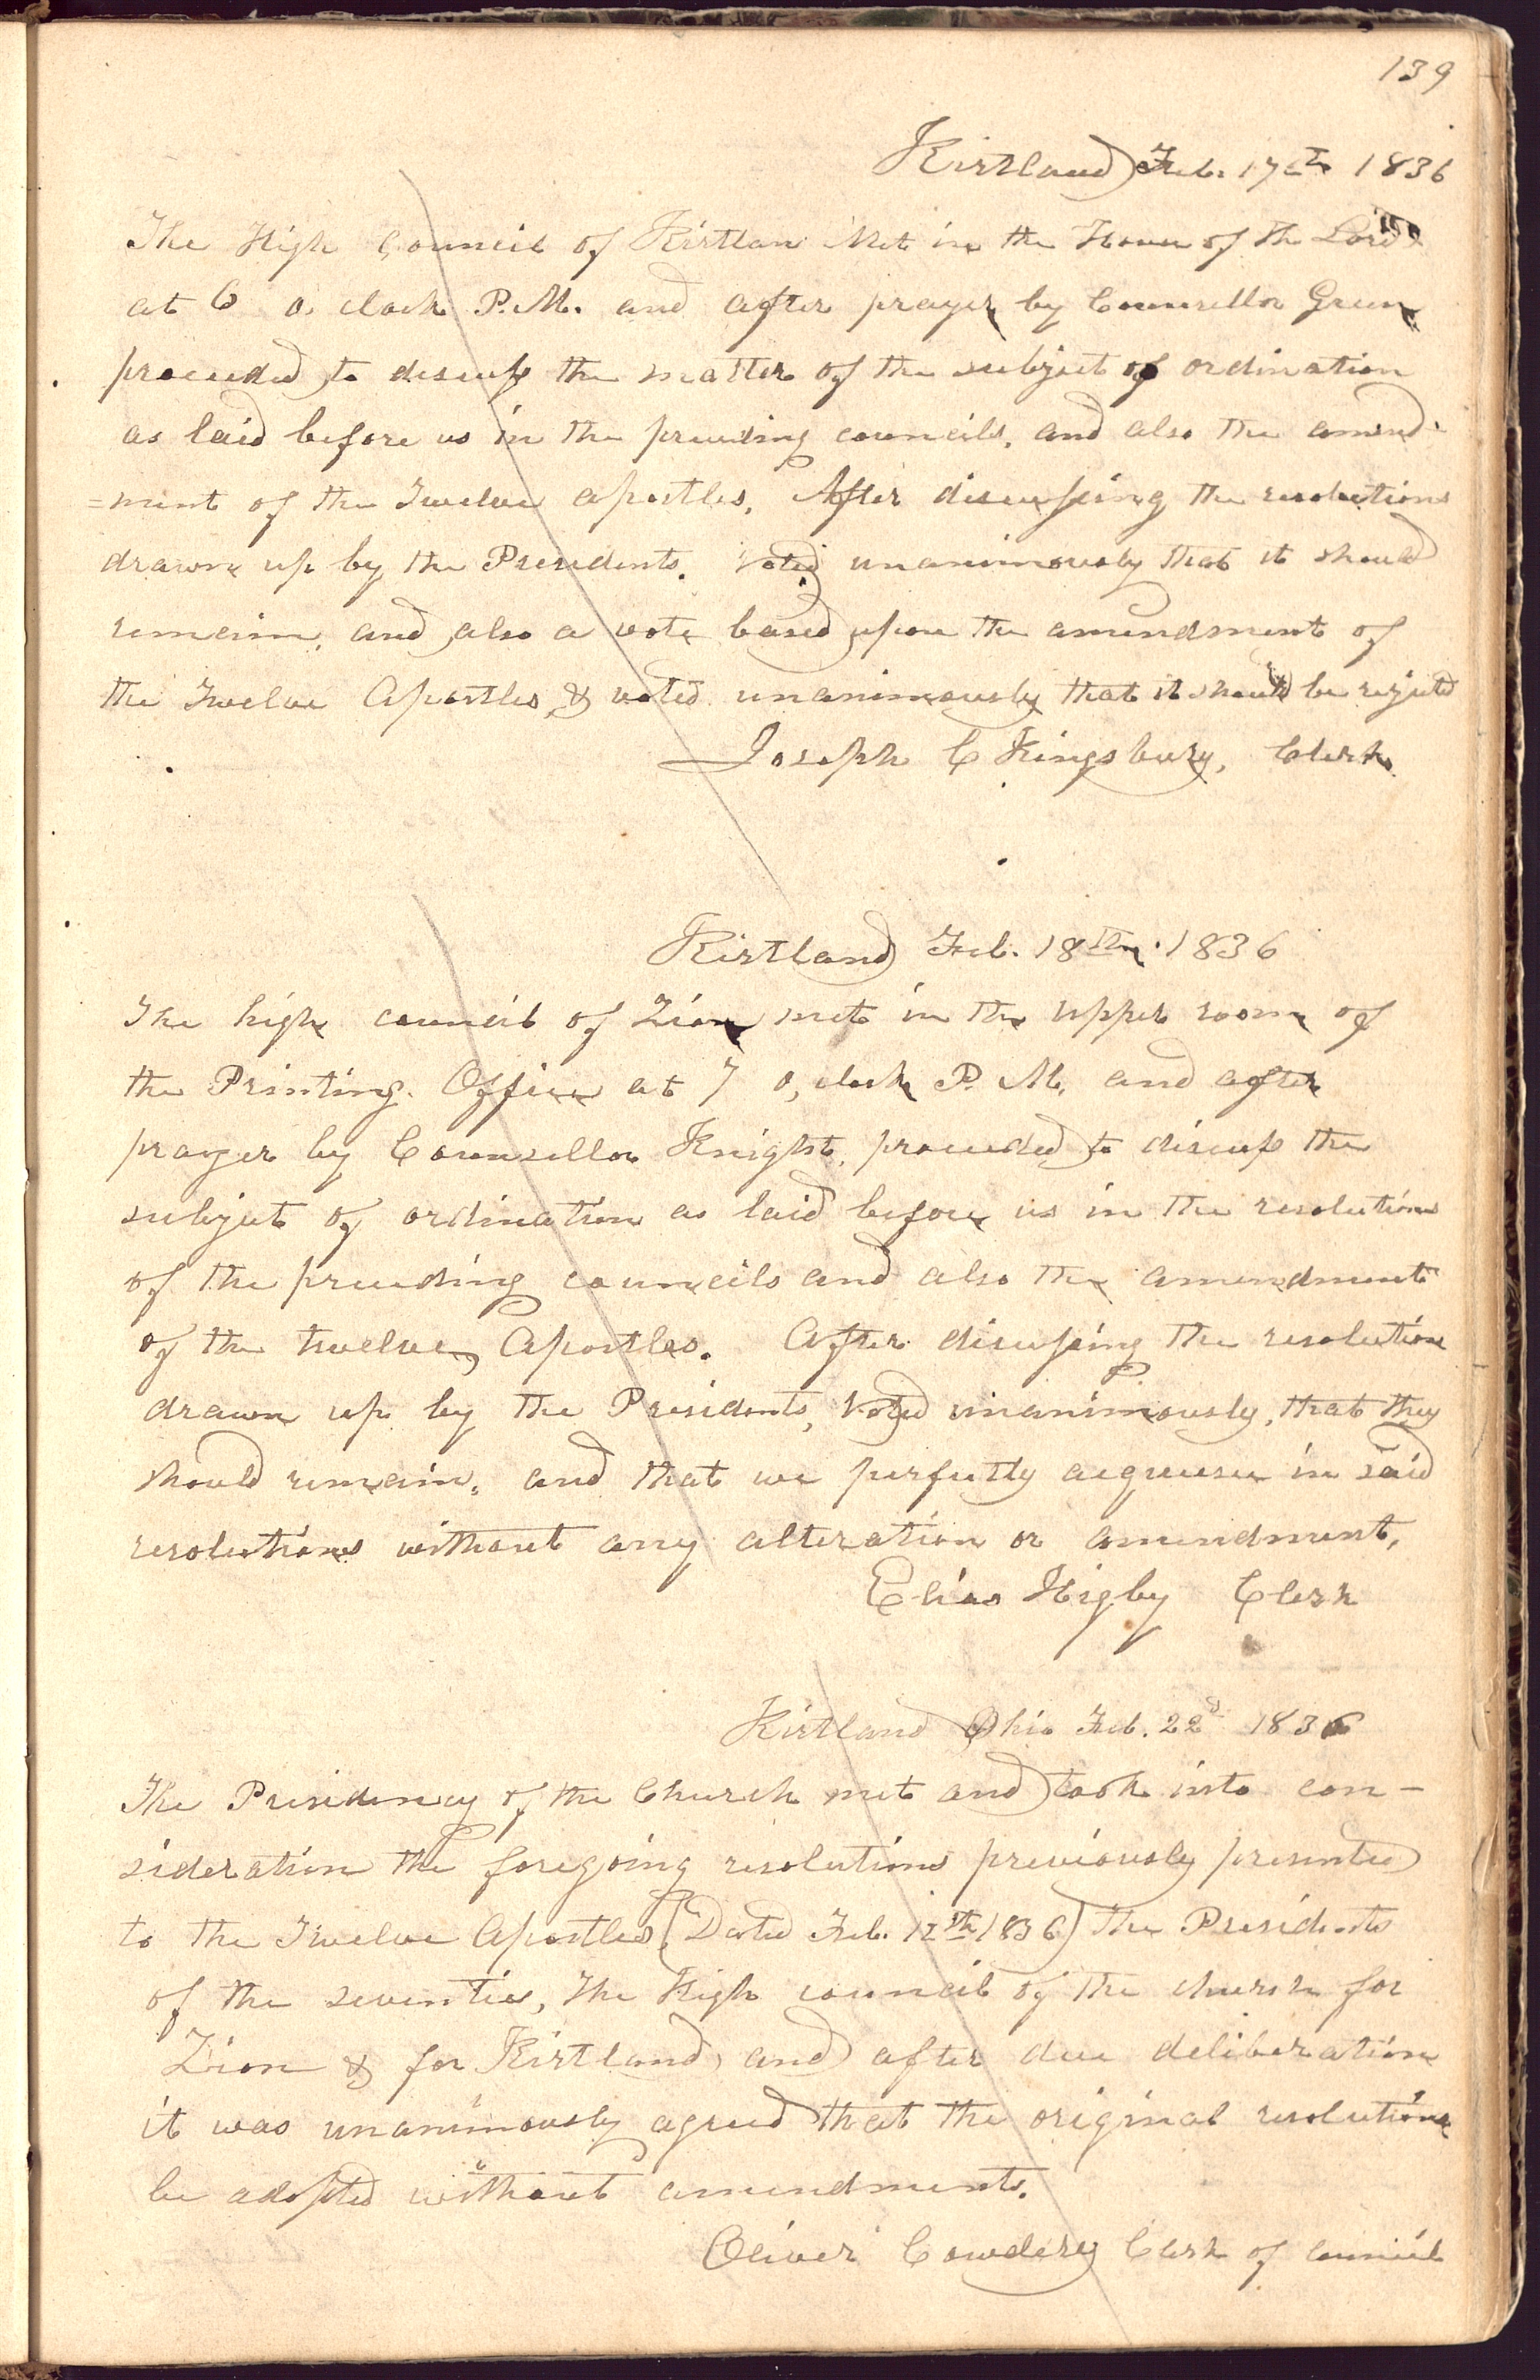 139
Kirtland Feb. 17th 1836
The High Council of Kirtlan Met in the House of the Lord
at 6 o, clock P.M. and after prayer by Counsellor Green
proceeded to discuss the matter of the subject of ordination
as laid before us in the preceding councils. and also the amend-
=ment of the Twelve apostles. After discussing the resolutions
drawn up by the Presidents. Voted unanimously that it should
remain, and also a vote based upon the amendment of
the Twelve Apostles & voted unanimously that it should be rejected
Joseph C Kingsbury, Clerk.
Kirtland Feb. 18th. 1836
The high council of Zion met in the upper room of
the Printing. Office at 7 o, clock P. M. and after
prayer by Counsellor Knight, proceeded to discuss the
subject of ordination as laid before us in the resolutions
of the preceding councils and also the amendment
of the twelve Apostles. After discussing the resolution
drawn up by the Presidents, Voted unanimously, that they
should remain. and that we perfectly acquiesce in said
resolutions without any alteration or amendment,
Elias Higby Clerk
Kirtland Ohio Feb. 22d 1836
The Presidency of the Church met and took into con-
sideration the foregoing resolutions previously presented
to the Twelve Apostles (Dated Feb. 12th 1836) The Presidents
of the seventies, The High council of the church for
Zion & for Kirtland, and after due deliberation
it was unanimously agreed that the original resolutions
be adopted without amendments.
Oliver Cowdery Clerk of council